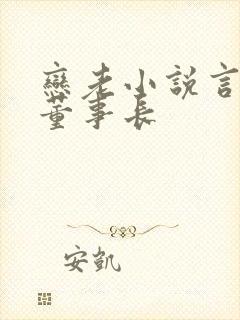 戀老小說言
董事長
安凱